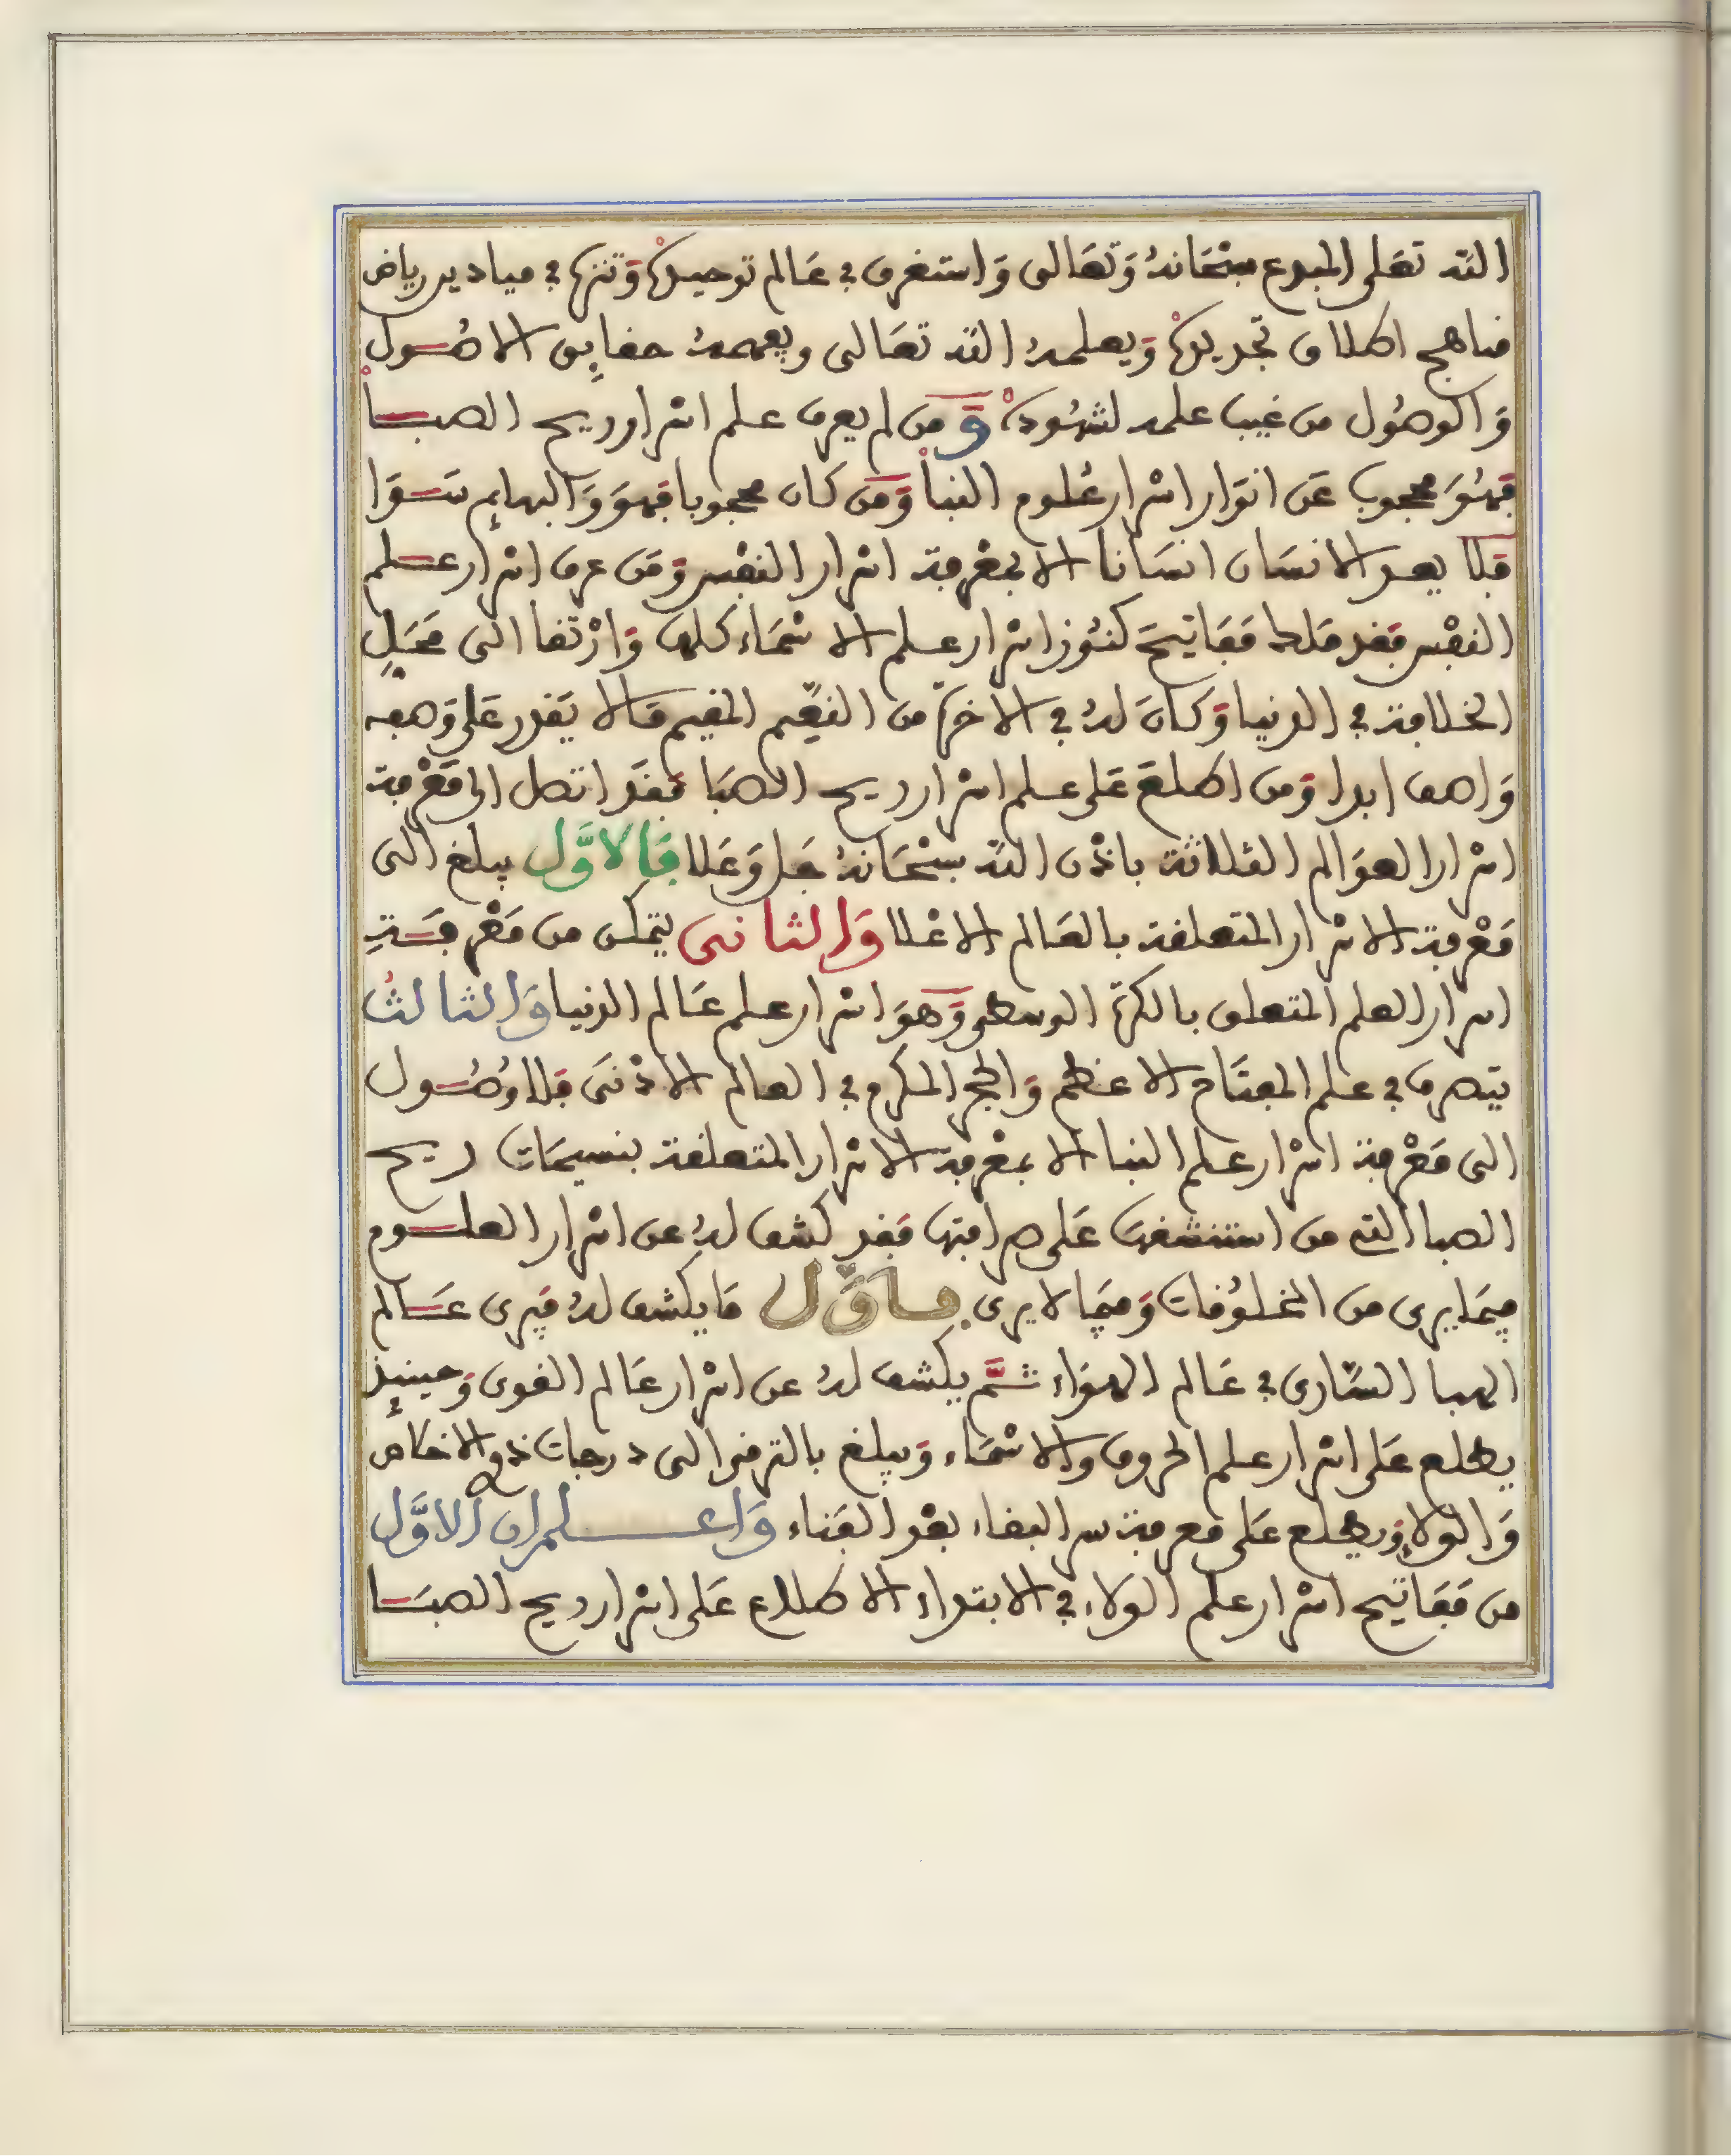 الله تعلى المبدع سبحانهُ وَتعَالى وَاستغرق في عَالم توحيده وَتنزه في ميادين رياض
مناهج اطلاق تجريده وَيعلمهُ الله تعَالى ويفهمهُ حقايق الاصُول
وَالوصُول من غيب علمه لشهُوده وَمن لم يعرف علم اسْرار ريح الصبا
فهُوَ محجوب عَن انوَار اسْرار عُلوم النبأ وَمَن كان محجوبا فهوَ وَالبهايم سَوَا
فَلا يعد الانسَان انسَانا الا بمعْرفة اسْرار النفْس وَمَن عرف اسْرار علم
النفْس فقد ملك مَفَاتيحَ كنُوز اسْرار علم الاسْمَاء كلها وَارْتقا الى مَحَلِّ
الخلافة في الدنيا وَكانَ لهُ في الاخرة من النعِيم المقيم مَا لا يَقدر عَلى وَصفه
وَاصف ابدا وَمن اطلعَ عَلى علم اسْرار ريح الصبَا فقَد اتصل الى مَعْرفة
اسْرار العوَالم الثلاثة باذْن الله سبْحَانهُ جَل وَعَلا فَالاوَّل يبلغ الى
مَعْرفة الاسْرار المتعلقة بالعَالم الاعْلا وَالثانى يتمكن من مَعْرفَةِ
اسرار العلم المتعلق بالكرة الوسطى وَهوَ اسْرار علم عَالم الدنيا وَالثالثُ
يتصرف في علم المفتَاح الاعظم وَالحجر المكرم في العالم الادْنَى فلا وصُول
الى مَعْرفة اسْرار علم النبا الا بمعْرفة الاسْرار المتعلقة بنسيمَات ريح
الصبا التي من استنشقهَا عَلى صرافتها فقد كشف لهُ عن اسْرار العلوم
فيمَا يرى من المخلوُقات وَفيمَا لا يرى فاوَّل مَا يكشف لهُ فيَرى عَالم
الهبا السَّارى في عَالم الهوَاء ثمَّ يكشف لهُ عن اسْرار عَالم القوى وَحينيذٍ
يطلع عَلى اسْرار علم الحروف والاسْمَاء وَيبلغ بالترقى الى درجات ذو الاختصاص
وَالوَلاء وَيطلع عَلى معرفة سر البقاء بعْد الفَناء وَاعلم ان الاوَّل
من مَفَاتيح اسْرار علم الوَلاء في الابتداء الاطلاع عَلى اسْرار ريح الصبَا